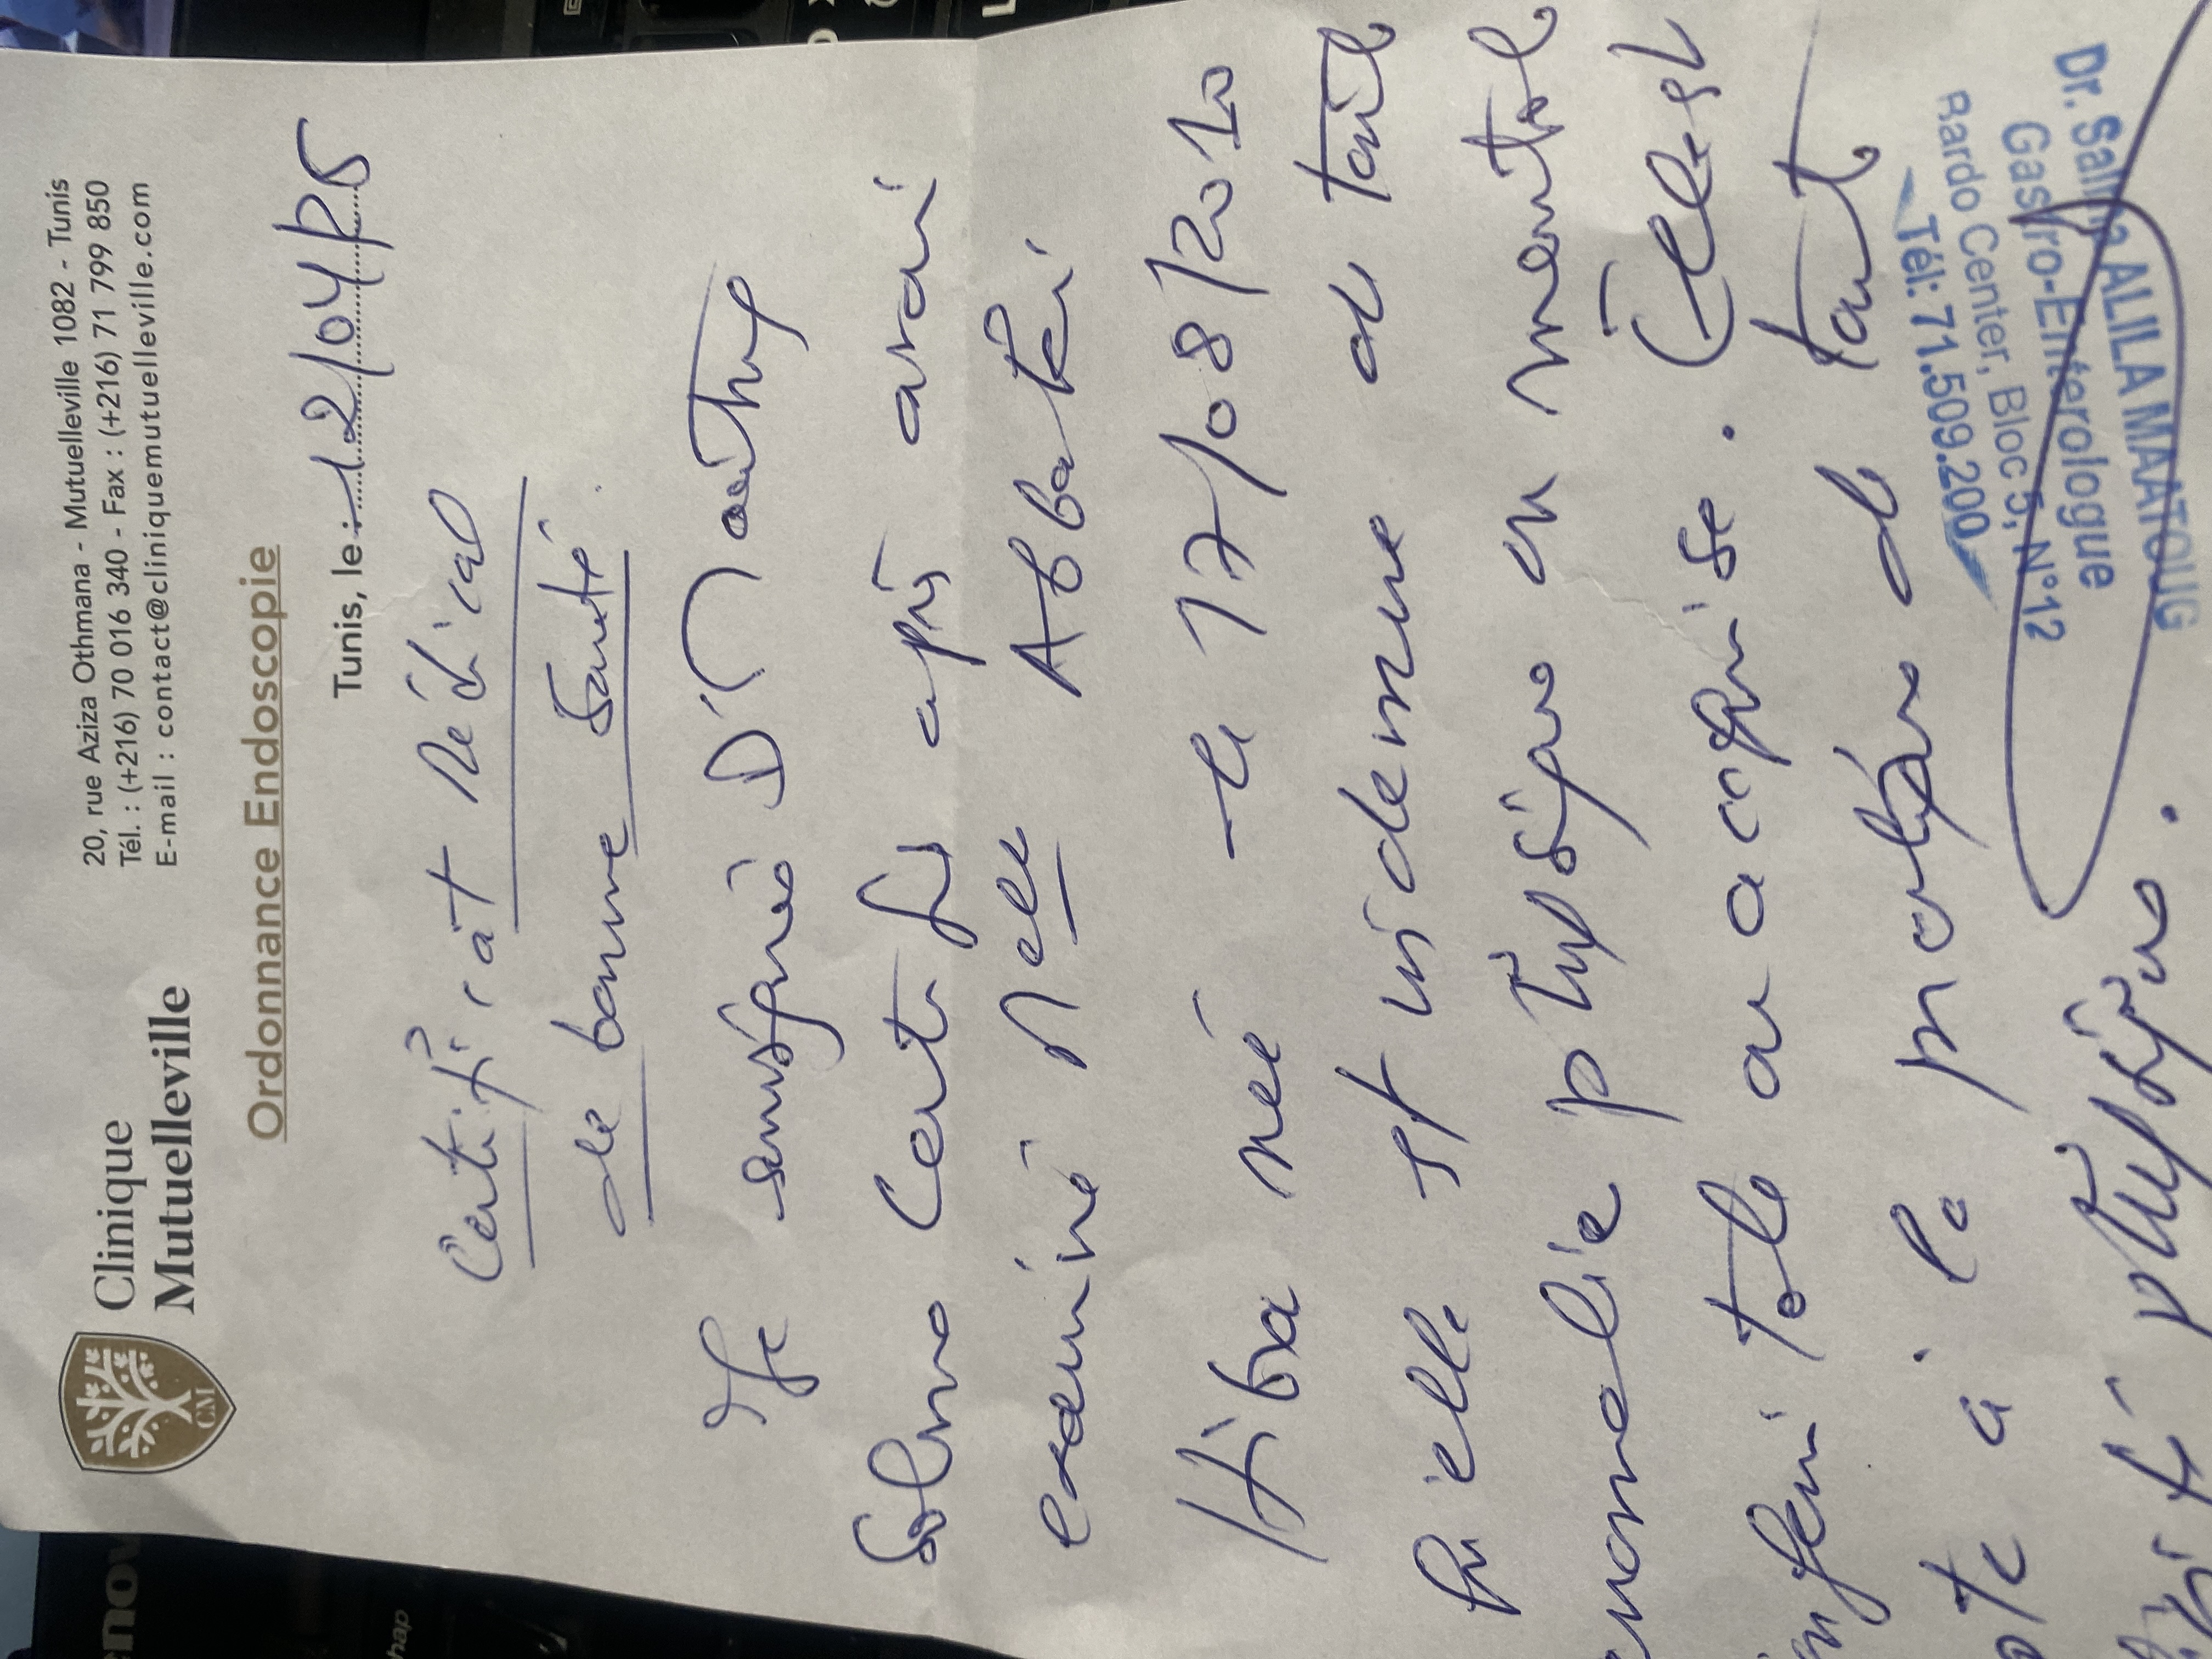 Clinique
Mutuelleville
20, rue Aziza Othmana - Mutuelleville 1082 - Tunis
Tél. : (+216) 70 016 340 - Fax : (+216) 71 799 850
E-mail : contact@cliniquemutuelleville.com
CM
Ordonnance Endoscopie
Tunis, le 12/04/25
Certificat Médical
de bonne Santé
Je soussigné Dr Maatoug
Salma Certifie après avoir
examiné Melle Abbati
Hiba née le 17/08/2010
qu'elle est indemne de toute
anomalie physique ou mentale
enfant ou acquise. Elle est
apte à la pratique de toute
activité physique.
Dr. Salma ALILA MAATOUG
Gastro-Enterologue
Bardo Center, Bloc 5, N°12
Tél: 71.509.200
hap